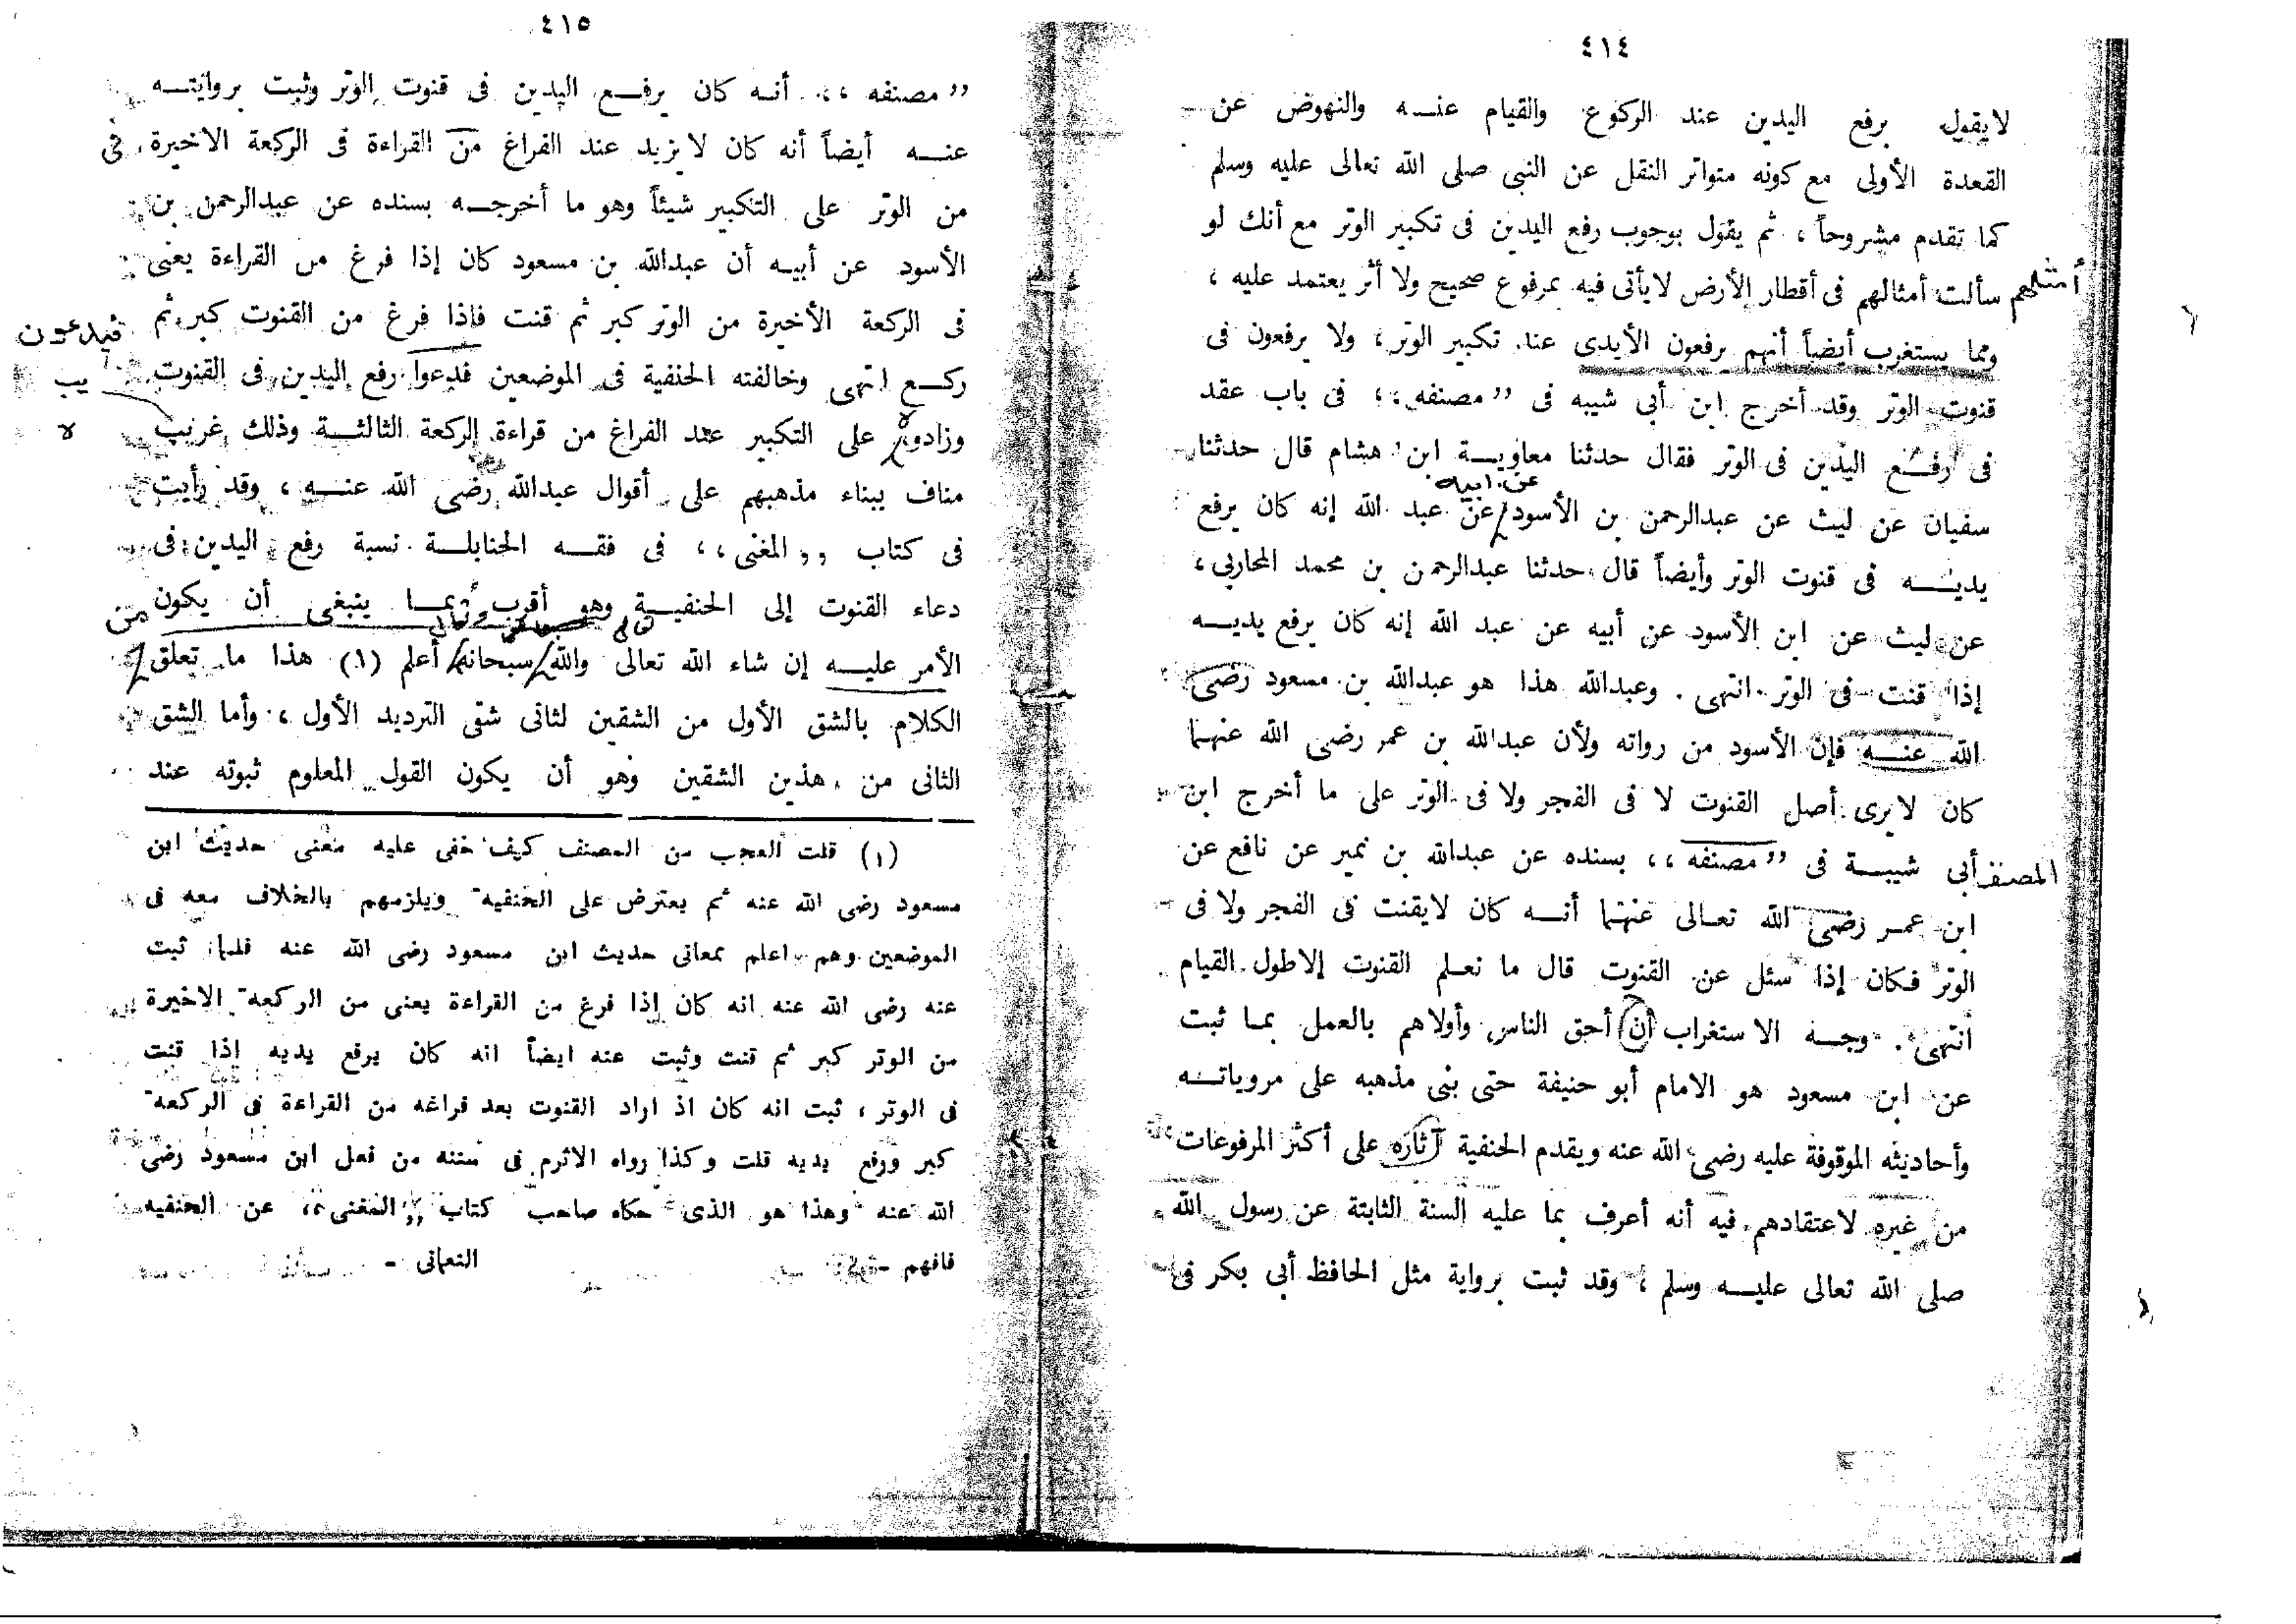 ٤١٤
لايقول برفع اليدين عند الركوع والقيام عنه والنهوض عن
القعدة الأولى مع كونه متواتر النقل عن النبى صلى الله تعالى عليه وسلم
كما تقدم مشروحاً ، ثم يقول بوجوب رفع اليدين فى تكبير الوتر مع أنك لو
سألت أمثالهم فى أقطار الأرض لايأتى فيه بمرفوع صحيح ولا أثر يعتمد عليه ،
أمثلهم
ومما يستغرب أيضاً أنهم يرفعون الأيدى عند تكبير الوتر ؛ ولا يرفعون فى
قنوت الوتر وقد أخرج ابن أبى شيبه فى ,, مصنفه ،، فى باب عقد
فى رفع اليدين فى الوتر فقال حدثنا معاوية ابن هشام قال حدثنا
عن ابيه
سفيان عن ليث عن عبدالرحمن بن الأسود عن عبد الله إنه كان يرفع
يديه فى قنوت الوتر وأيضاً قال حدثنا عبدالرحمن بن محمد المحاربى ،
عن ليث عن ابن الأسود عن أبيه عن عبد الله إنه كان يرفع يديه
إذا قنت فى الوتر انتهى . وعبدالله هذا هو عبدالله بن مسعود رضى
الله عنه فإن الأسود من رواته ولأن عبدالله بن عمر رضى الله عنهما
كان لايرى أصل القنوت لا فى الفجر ولا فى الوتر على ما أخرج ابن
أبى شيبة فى ,, مصنفه ،، بسنده عن عبدالله بن نمير عن نافع عن
المصنف
ابن عمر رضى الله تعالى عنهما أنه كان لايقنت فى الفجر ولا فى
الوتر فكان إذا سئل عن القنوت قال ما نعلم القنوت إلاطول القيام
انتهى . وجه الاستغراب أن أحق الناس وأولاهم بالعمل بما ثبت
عن ابن مسعود هو الامام أبو حنيفة حتى بنى مذهبه على مروياته
وأحاديثه الموقوفة عليه رضى الله عنه ويقدم الحنفية آثاره على أكثر المرفوعات
من غيره لاعتقادهم فيه أنه أعرف بما عليه السنة الثابتة عن رسول الله
صلى الله تعالى عليه وسلم ؛ وقد ثبت برواية مثل الحافظ أبى بكر فى
٤١٥
,, مصنفه ،، أنه كان يرفع اليدين فى قنوت الوتر وثبت بروايته
عنه أيضاً أنه كان لا يزيد عند الفراغ من القراءة فى الركعة الاخيرة
فى
من الوتر على التكبير شيئاً وهو ما أخرجه بسنده عن عبدالرحمن بن
الأسود عن أبيه أن عبدالله بن مسعود كان إذا فرغ من القراءة يعنى
فى الركعة الأخيرة من الوتر كبر ثم قنت فاذا فرغ من القنوت كبر ثم
فيدعون
ركع انتهى وخالفته الحنفية فى الموضعين فدعوا رفع اليدين فى القنوت
يب
وزادوا على التكبير عند الفراغ من قراءة الركعة الثالثة وذلك غريب
لا
مناف ببناء مذهبهم على أقوال عبدالله رضى الله عنه ، وقد رأيت
فى كتاب ,, المغنى ،، فى فقه الحنابلة نسبة رفع اليدين فى
دعاء القنوت إلى الحنفية وهو أقرب بما ينبغى أن يكون
من
الأمر عليه إن شاء الله تعالى والله سبحانه أعلم (١) هذا ما تعلق
الكلام بالشق الأول من الشقين لثانى شقى الترديد الأول ، وأما الشق
الثانى من هذين الشقين وهو أن يكون القول المعلوم ثبوته عند
(١) قلت العجب من المصنف كيف خفى عليه معنى حديث ابن
مسعود رضى الله عنه ثم يعترض على الحنفية ويلزمهم بالخلاف معه فى
الموضعين وهم اعلم بمعانى حديث ابن مسعود رضى الله عنه فلما ثبت
عنه رضى الله عنه انه كان إذا فرغ من القراءة يعنى من الركعة الاخيرة
من الوتر كبر ثم قنت وثبت عنه ايضاً انه كان يرفع يديه إذا قنت
فى الوتر ، ثبت انه كان اذ اراد القنوت بعد فراغه من القراءة فى الركعة
كبر ورفع يديه قلت وكذا رواه الاثرم فى سننه من فعل ابن مسعود رضى
الله عنه وهذا هو الذى حكاه صاحب كتاب ,, المغنى ،، عن الحنفيه
فافهم - النعمانى -